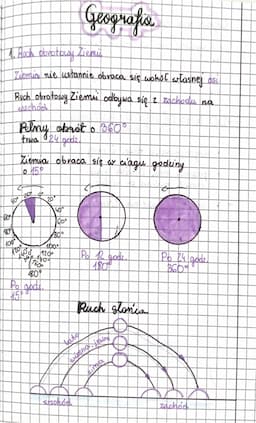 Geografia
1. Ruch obrotowy Ziemi
Ziemia nie ustannie obraca się wokół własnej osi
Ruch obrotowy Ziemi odbywa się z zachodu na
wschód
Pełny obrót o 360°
trwa 24 godz.
Ziemia obraca się w ciągu godziny
o 15°
Po godz.
15°
Po 12 godz.
180°
Po 24 godz.
360°
180°
Ruch słońca
lato
wiosna, jesień
zima
wschód
zachód